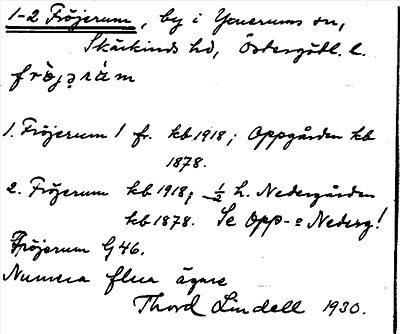 1-2 Fröjerum, by i Yxnerums sn,
Skärkinds hd, Östergötl. l.
frö̀jərùm
1. Fröjerum 1 fr. kb 1918; Oppgården kb
1878.
2. Fröjerum kb 1918; ½ h. Nedergården
kb 1878. Se Opp- o Nederg!
Fröjerum G 46.
Numera flera ägare
Thord Lindell 1930.